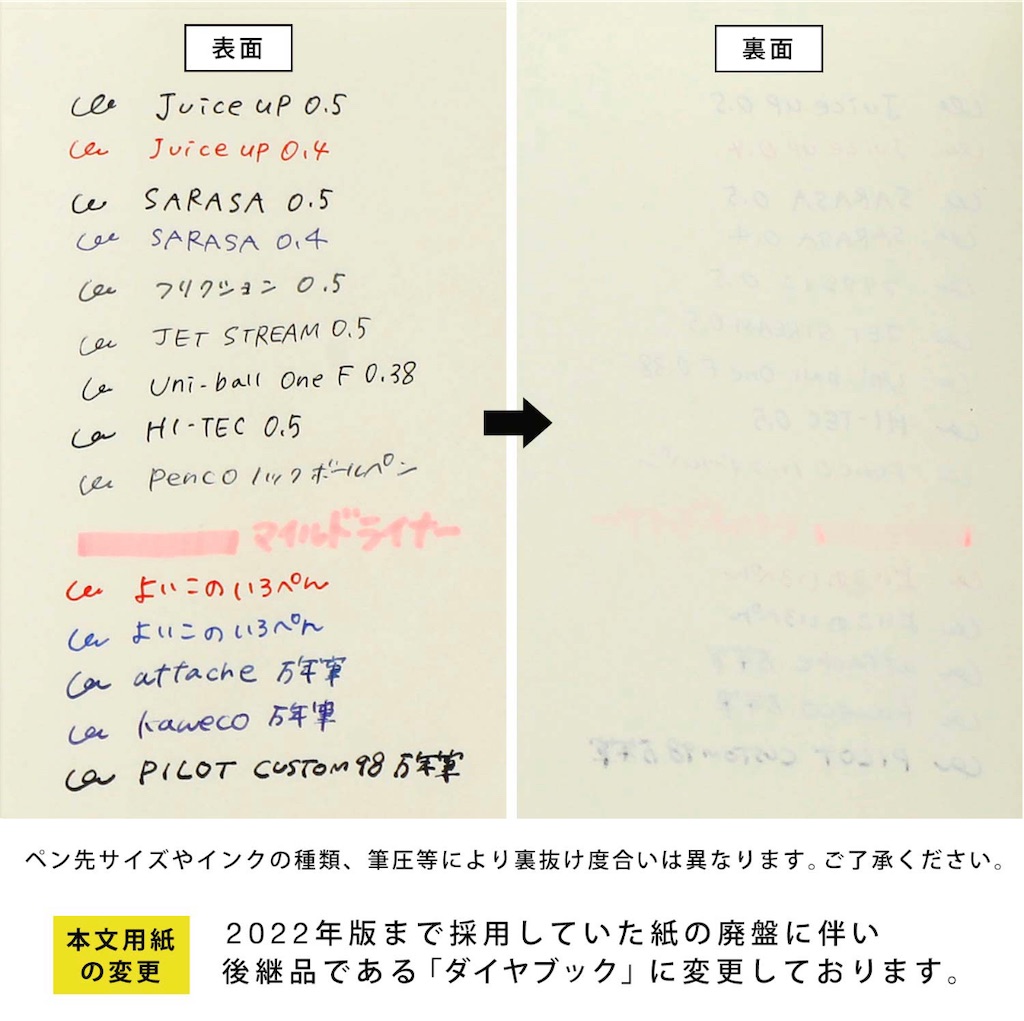 表面
Juice up 0.5
Juice up 0.4
SARASA 0.5
SARASA 0.4
フリクション 0.5
JET STREAM 0.5
Uni-ball One F 0.38
HI-TEC 0.5
penco ノックボールペン
マイルドライナー
よいこのいろぺん
よいこのいろぺん
attache 万年筆
kaweco 万年筆
PILOT CUSTOM98 万年筆
裏面
ペン先サイズやインクの種類、筆圧等により裏抜け度合いは異なります。ご了承ください。
本文用紙
の変更
2022年版まで採用していた紙の廃盤に伴い
後継品である「ダイヤブック」に変更しております。